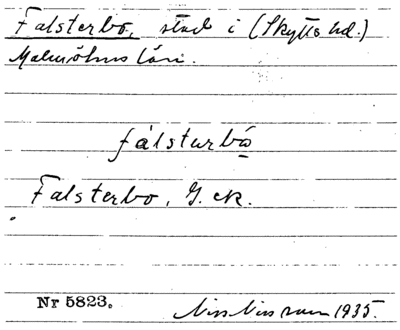 Falsterbo, stad i (Skytts hd.)
Malmöhus län.
fálsturbo̲
Falsterbo, G. ek.
Nr 5823.
1935.